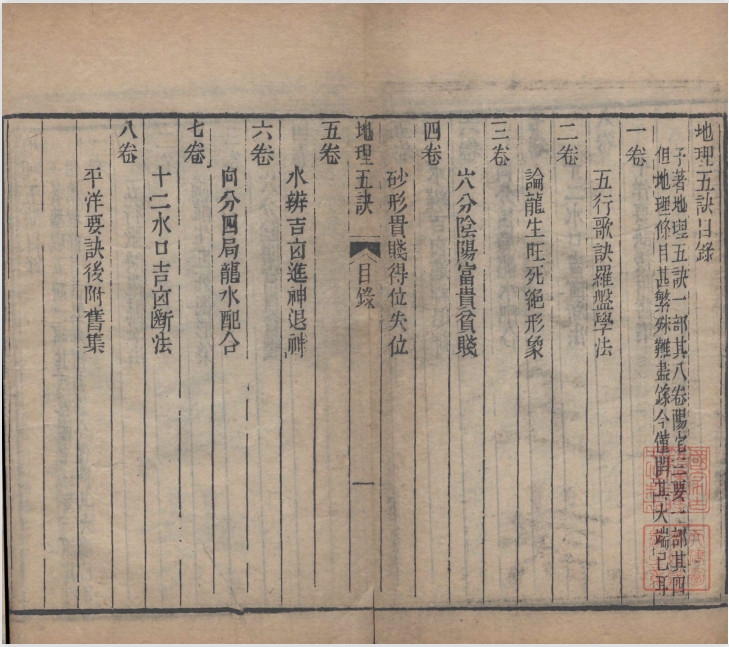 地理五訣目錄
予著地理五訣一部其八卷陽宅三要一部其四
但地理條目甚繁殊難盡錄今僅開其大端已耳
一卷
五行歌訣羅盤學法
二卷
論龍生旺死絕形象
三卷
穴分陰陽富貴貧賤
四卷
砂形貴賤得位失位
地理五訣 目錄 一
五卷
水辨吉凶進神退神
六卷
向分四局龍水配合
七卷
十二水口吉凶斷法
八卷
平洋要訣後附舊集